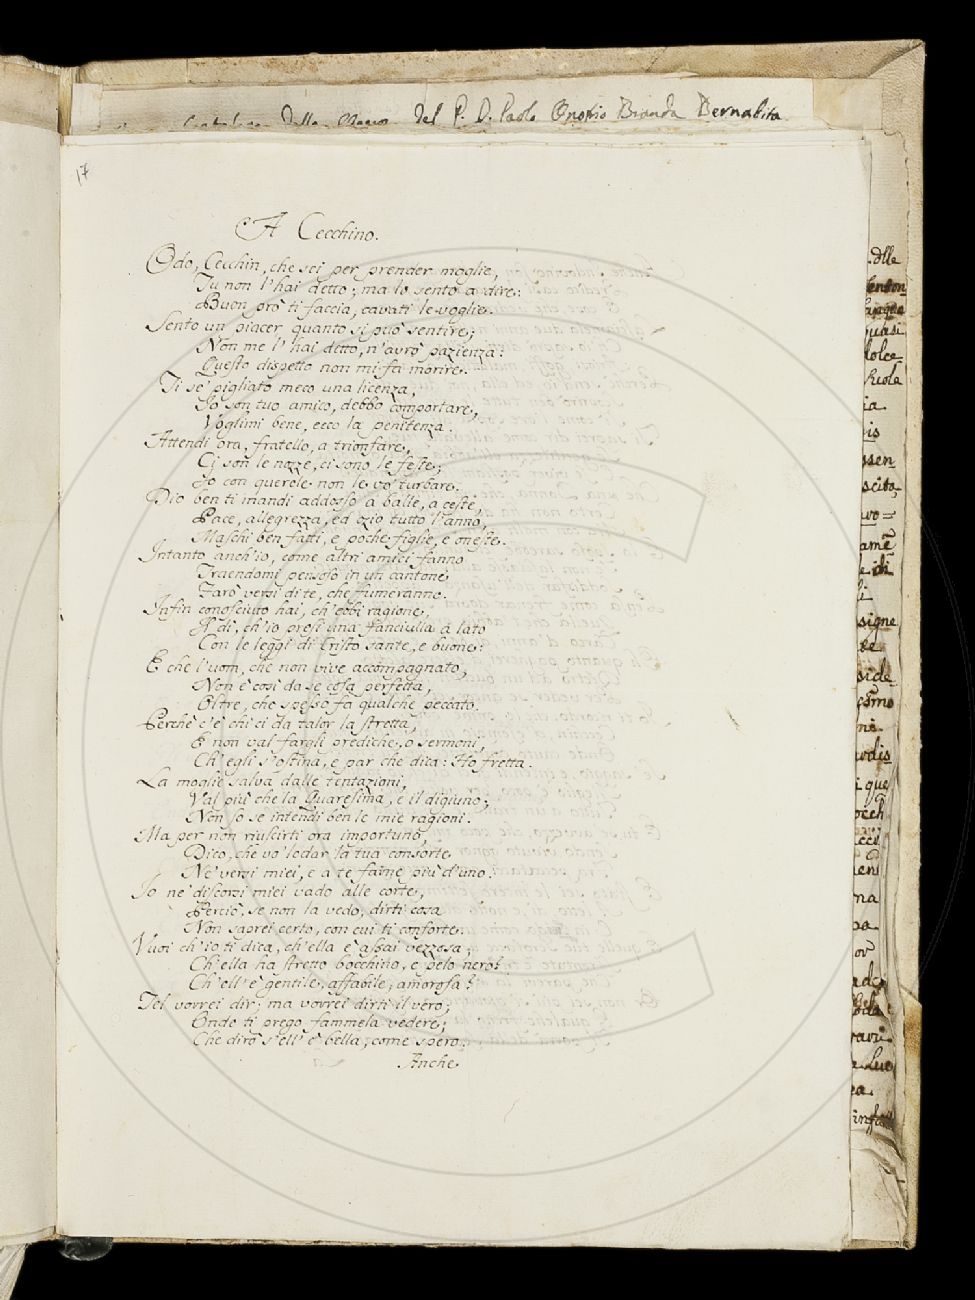 Della del P. D. Paolo Onofrio Branda Bernabita
17
A Cecchino.
Odo, Cecchin, che sei per prender moglie,
Tu non l'hai detto; ma lo sento a dire:
Buon prò ti faccia, cavati le voglie.
Sento un piacer quanto si può sentire;
Non me l'hai detto, n'avrò pazienza:
Questo dispetto non mi fa morire.
Ti se' pigliato meco una licenza,
Io son tuo amico, debbo comportare,
Voglimi bene, ecco la penitenza.
Attendi ora, fratello, a trionfare,
Ci son le nozze, ci sono le feste;
Io con querele non le vo' turbare.
Dio ben ti mandi addosso a balle, a ceste,
Pace, allegrezza, ed ozio tutto l'anno,
Maschi ben fatti, e poche figlie, e oneste.
Intanto anch'io, come altri amici fanno
Traendomi pensoso in un cantone
Farò versi di te, che fumeranno.
Infin conosciuto hai, ch'ebbi ragione,
A dì, ch'io presi una fanciulla a lato
Con le leggi di Cristo sante, e buone:
E che l'uom, che non vive accompagnato,
Non è così da se cosa perfetta,
Oltre, che spesso fa qualche peccato.
Perchè c'è chi ci dà talor la stretta,
E non val fargli prediche, o sermoni,
Ch'egli s'ostina, e par che dica: Ho fretta.
La moglie salva dalle tentazioni,
Val più che la Quaresima, e il digiuno;
Non so se intendi ben le mie ragioni.
Ma per non riuscirti ora importuno,
Dico, che vo' lodar la tua consorte
Ne' versi miei, e a te farne più d'uno.
Io ne' discorsi miei vado alle corte,
Perciò, se non la vedo, dirti cosa
Non saprei certo, con cui ti conforte.
Vuoi ch'io ti dica, ch'ella è assai vezzosa,
Ch'ella ha stretto bocchino, e pelo nero?
Ch'ell'è gentile, affabile, amorosa?
Tel vorrei dir; ma vorrei dirti il vero;
Onde ti prego fammela vedere;
Che dirò s'ell'è bella, come spero.
Anche